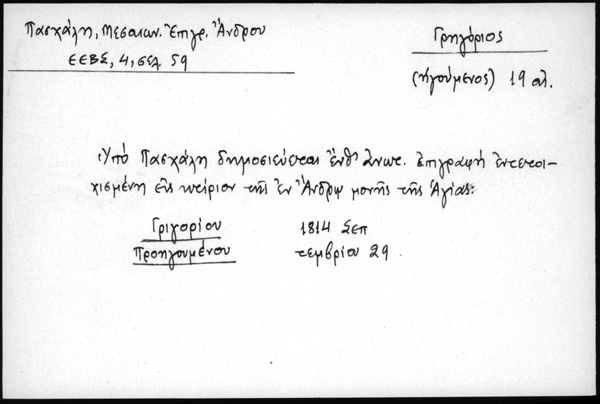 Πασχάλη, Μεσαιων. Ἐπιγρ. Ἄνδρου
ΕΕΒΣ, 4, σελ. 59
Γρηγόριος
(ἡγούμενος) 19 αἰ.
Ὑπό Πασχάλη δημοσιεύεται ἔνθ' ἀνωτ. ἐπιγραφή ἐντετοι-
χισμένη εἰς κτίριον τῆς ἐν Ἄνδρῳ μονῆς τῆς Ἁγίας:
Γριγορίου 1814 Σεπ
Προηγουμένου τεμβρίου 29.